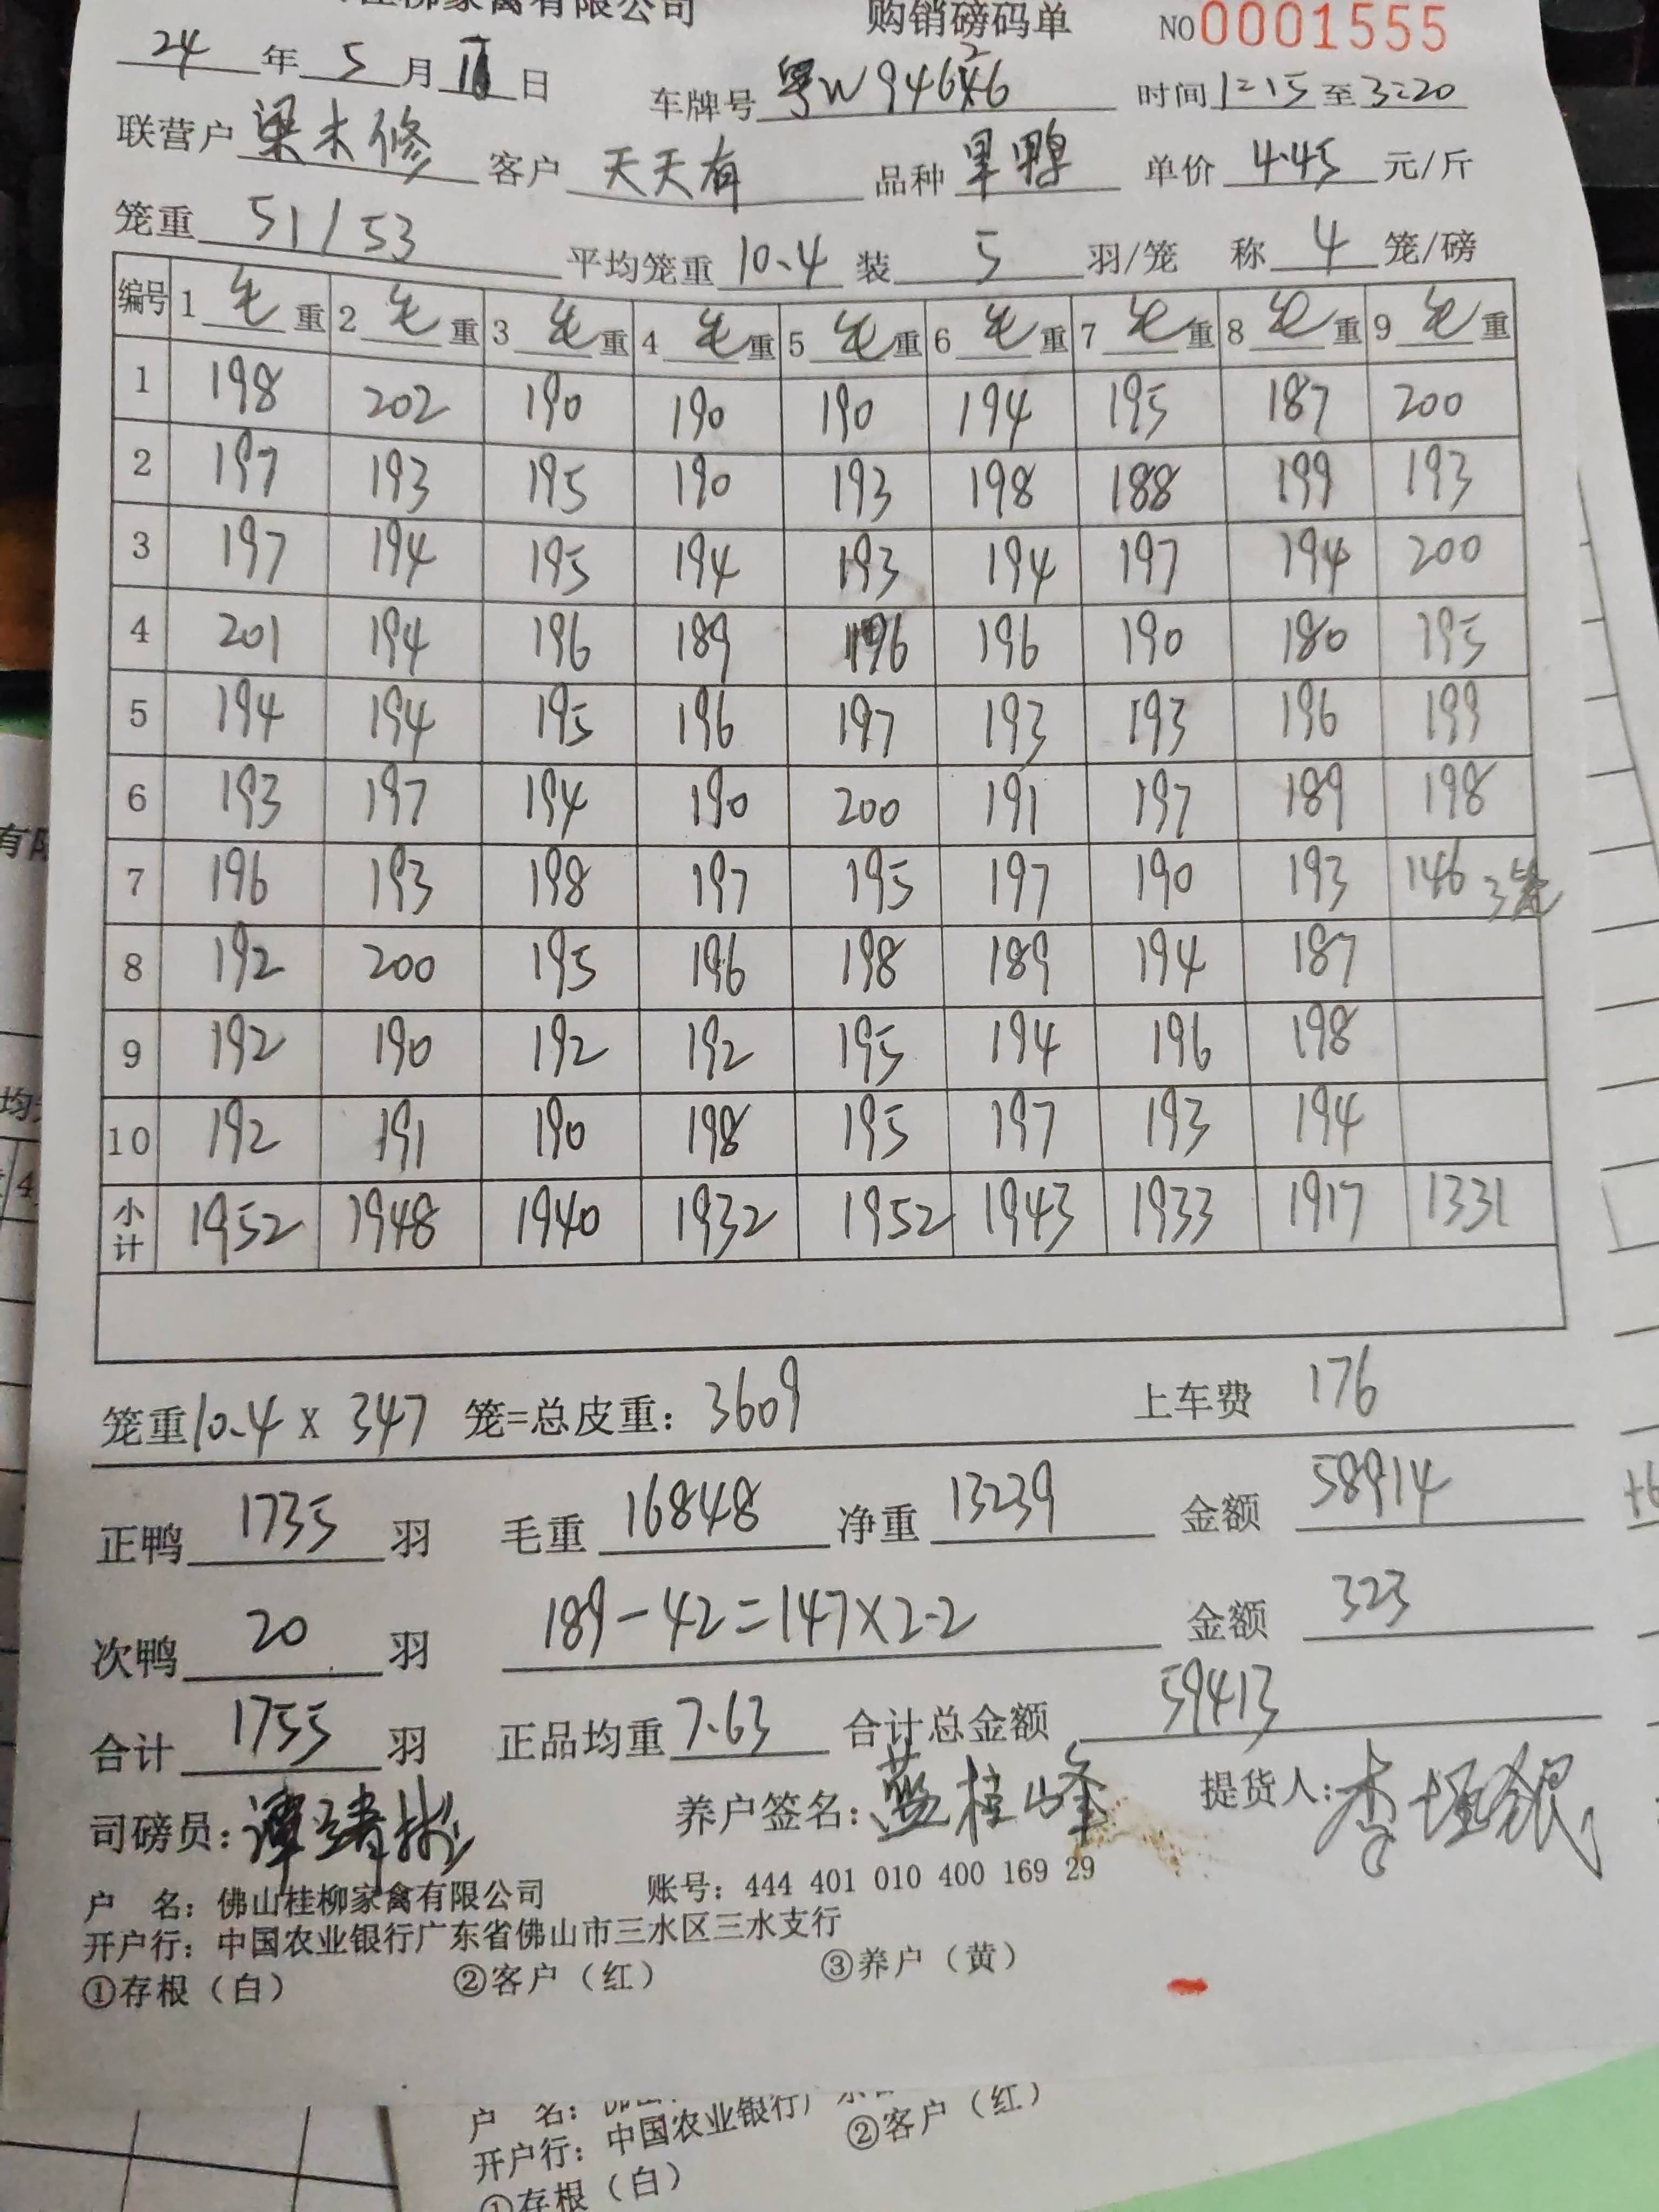 桂柳家禽有限公司 购销磅码单 NO 0001555
24 年 5 月 日 车牌号 粤W 时间 1:15 至 3:20
联营户 梁木修 客户 天天有 品种 单价 4.45 元/斤
笼重 51/53 平均笼重 10.4 装 5 羽/笼 称 4 笼/磅
编号 1 毛 重 2 毛 重 3 毛 重 4 毛 重 5 毛 重 6 毛 重 7 毛 重 8 毛 重 9 毛 重
1 198 202 190 190 190 194 195 187 200
2 197 193 195 190 193 198 188 199 193
3 197 194 195 194 193 194 197 194 200
4 201 194 196 189 196 196 190 180 195
5 194 194 195 196 197 193 193 196 199
6 193 197 194 190 200 191 197 189 198
7 196 193 198 197 195 197 190 193 146 3笼
8 192 200 195 196 198 189 194 187
9 192 190 192 192 195 194 196 198
10 192 191 190 198 195 197 193 194
小计 1952 1948 1940 1932 1952 1943 1933 1917 1331
笼重 10.4 x 347 笼=总皮重: 3609 上车费 176
正鸭 1735 羽 毛重 16848 净重 13239 金额 58914
次鸭 20 羽 189-42=147×2.2 金额 323
合计 1755 羽 正品均重 7.63 合计总金额 59413
司磅员: 养户签名: 蓝桂峰 提货人:
户 名: 佛山桂柳家禽有限公司 账号: 444 401 010 400 169 29
开户行: 中国农业银行广东省佛山市三水区三水支行
①存根（白） ②客户（红） ③养户（黄）
户 名:
开户行: 中国农业银行广
②客户（红）
①存根（白）